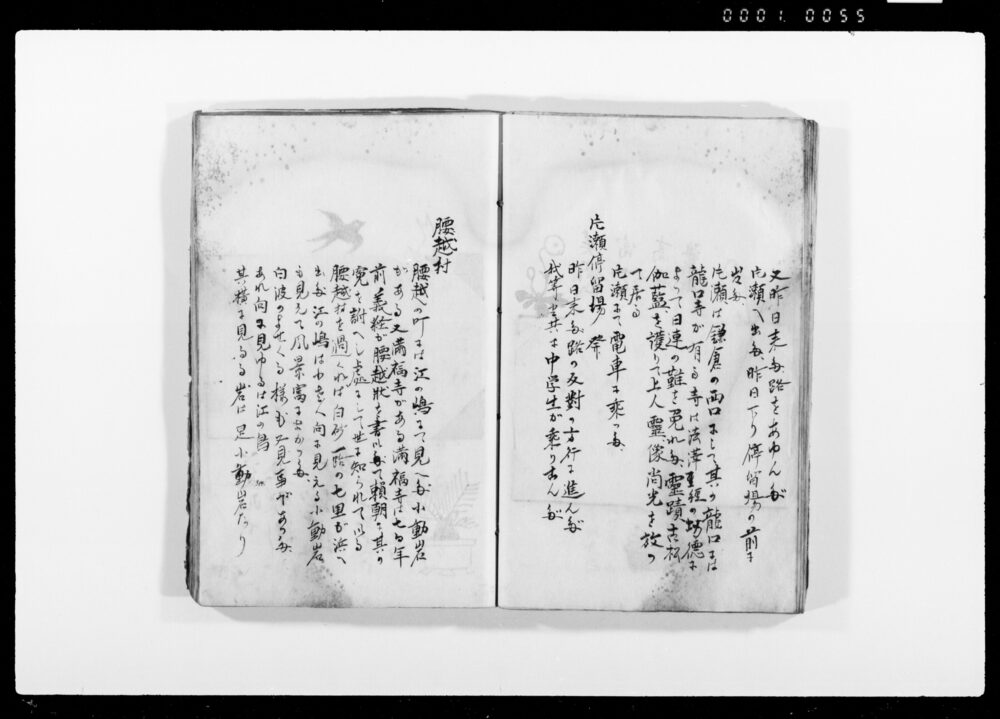 0001 0055
又昨日来た路をあゆんだ
片瀬へ出た昨日下り停留場の前に
出た
片瀬は鎌倉の西口にして其の龍口には
龍口寺が有る寺は法華経の功徳に
よって日連の難を免れた霊蹟
伽藍を護りて上人霊像尚光を放つ
て居る
片瀬にて電車に乗つた
片瀬停留場発
昨日来た路の反對の方行に進んだ
我等と共に中学生が乗りこんだ
腰越村
腰越の町には江の嶋にて見へた小動岩
がある又満福寺がある満福寺は七百年
前義経が腰越状を書いたて頼朝に其の
寃を訴へし處にして世に知られて居る
腰越村を過ぐれば白砂一路の七里が浜へ
出た江の嶋は向に見える小動岩
も見えて風景富によかつた
白波のよせくる様も又見事であつた
あれ向に見ゆるは江の島
其横に見ゆる岩は是小動岩なり